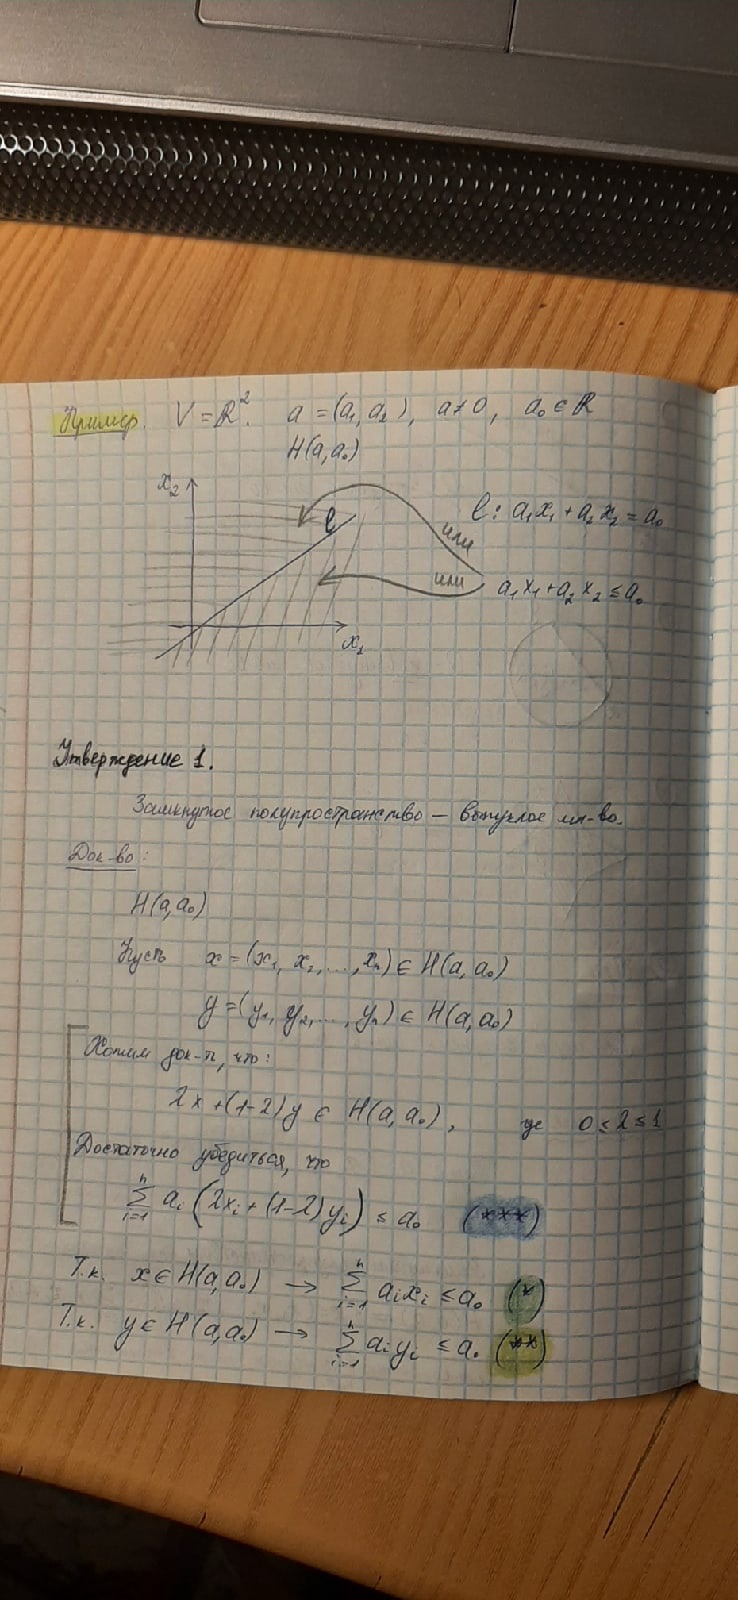 Пример. V = ℝ². a = (a₁, a₂), a ≠ 0, a₀ ∈ ℝ
H(a, a₀)
x₂
l
l: a₁x₁ + a₂x₂ = a₀
или
или
a₁x₁ + a₂x₂ ≤ a₀
x₁
Утверждение 1.
Замкнутое полупространство — выпуклое мн-во.
Док-во:
H(a, a₀)
Пусть x = (x₁, x₂, ..., xₙ) ∈ H(a, a₀)
y = (y₁, y₂, ..., yₙ) ∈ H(a, a₀)
Хотим док-ть, что:
λx + (1-λ)y ∈ H(a, a₀), где 0 ≤ λ ≤ 1
Достаточно убедиться, что
∑ᵢ₌₁ⁿ aᵢ(λxᵢ + (1-λ)yᵢ) ≤ a₀ (***)
Т.к. x ∈ H(a, a₀) → ∑ᵢ₌₁ⁿ aᵢxᵢ ≤ a₀ (*)
Т.к. y ∈ H(a, a₀) → ∑ᵢ₌₁ⁿ aᵢyᵢ ≤ a₀ (**)